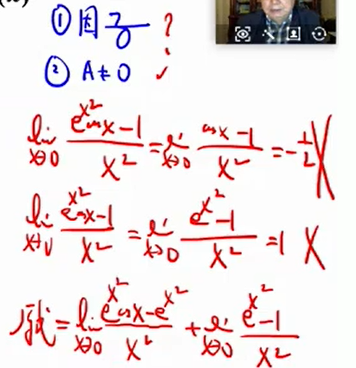 ① 因 ?/0 ?
② A≠0 ✓
lim x→0 (e^(x²)cosx-1)/x² = lim x→0 (cosx-1)/x² = -1/2 X
lim x→0 (e^(x²)cosx-1)/x² = lim x→0 (e^(x²)-1)/x² = 1 X
原式 = lim x→0 (e^(x²)cosx-e^(x²))/x² + lim x→0 (e^(x²)-1)/x²